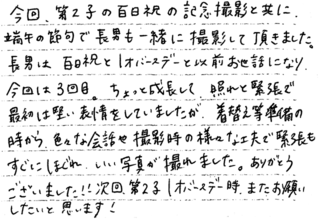 今回、第2子の百日祝の記念撮影と共に、
端午の節句で長男も一緒に撮影して頂きました。
長男は百日祝と1才バースデーと以前お世話になり、
今回は3回目。ちょっと成長して、照れと緊張で
最初は堅い表情をしていましたが、着替え等準備の
時から、色々な会話や撮影時の様々な工夫で緊張も
すぐにほぐれ、いい写真が撮れました。ありがとう
ございました!!次回、第2子1才バースデー時、またお願い
したいと思います!